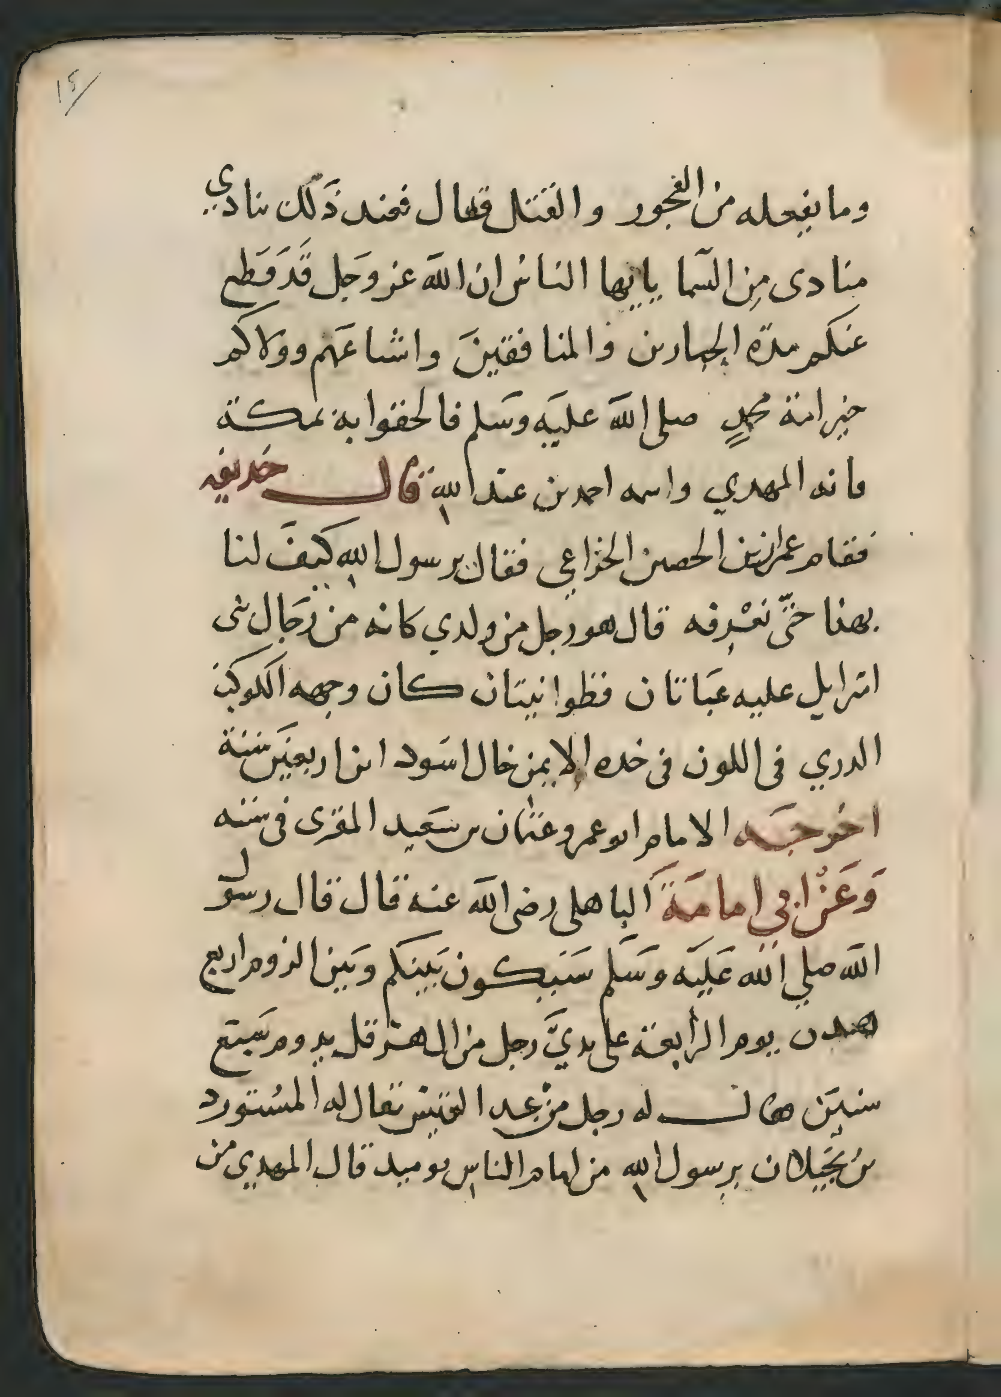 ١٥
وما يفعله من الفجور والقتل قال فعند ذلك ينادي
منادى من السما يايها الناس ان الله عز وجل قد قطع
عنكم مدة الجبارين والمنافقين واشياعهم وولاكم
خير امة محمد صلى الله عليه وسلم فالحقوا به بمكة
فانه المهدي واسمه احمد بن عبد الله قال حذيفه
فقام عمران بن الحصين الخزاعي فقال يرسول الله كيف لنا
بهذا حتى نعرفه قال هو رجل من ولدي كانه من رجال بنى
اسرايل عليه عباتان قطوانيتان كان وجهه الكوكب
الدري في اللون في خده الايمن خال اسود ابن اربعين سنة
اخرجه الامام ابو عمرو عثمان بن سعيد المقرى في سننه
وعن ابي امامة الباهلى رضى الله عنه قال قال رسول
الله صلي الله عليه وسلم سيكون بينكم وبين الروم اربع
هدن يوم الرابعة على يدي رجل من ال هرقل يدوم سبع
سنين قال له رجل من عبد القيس يقال له المستورد
بن جيلان يرسول الله من امام الناس يوميد قال المهدي من